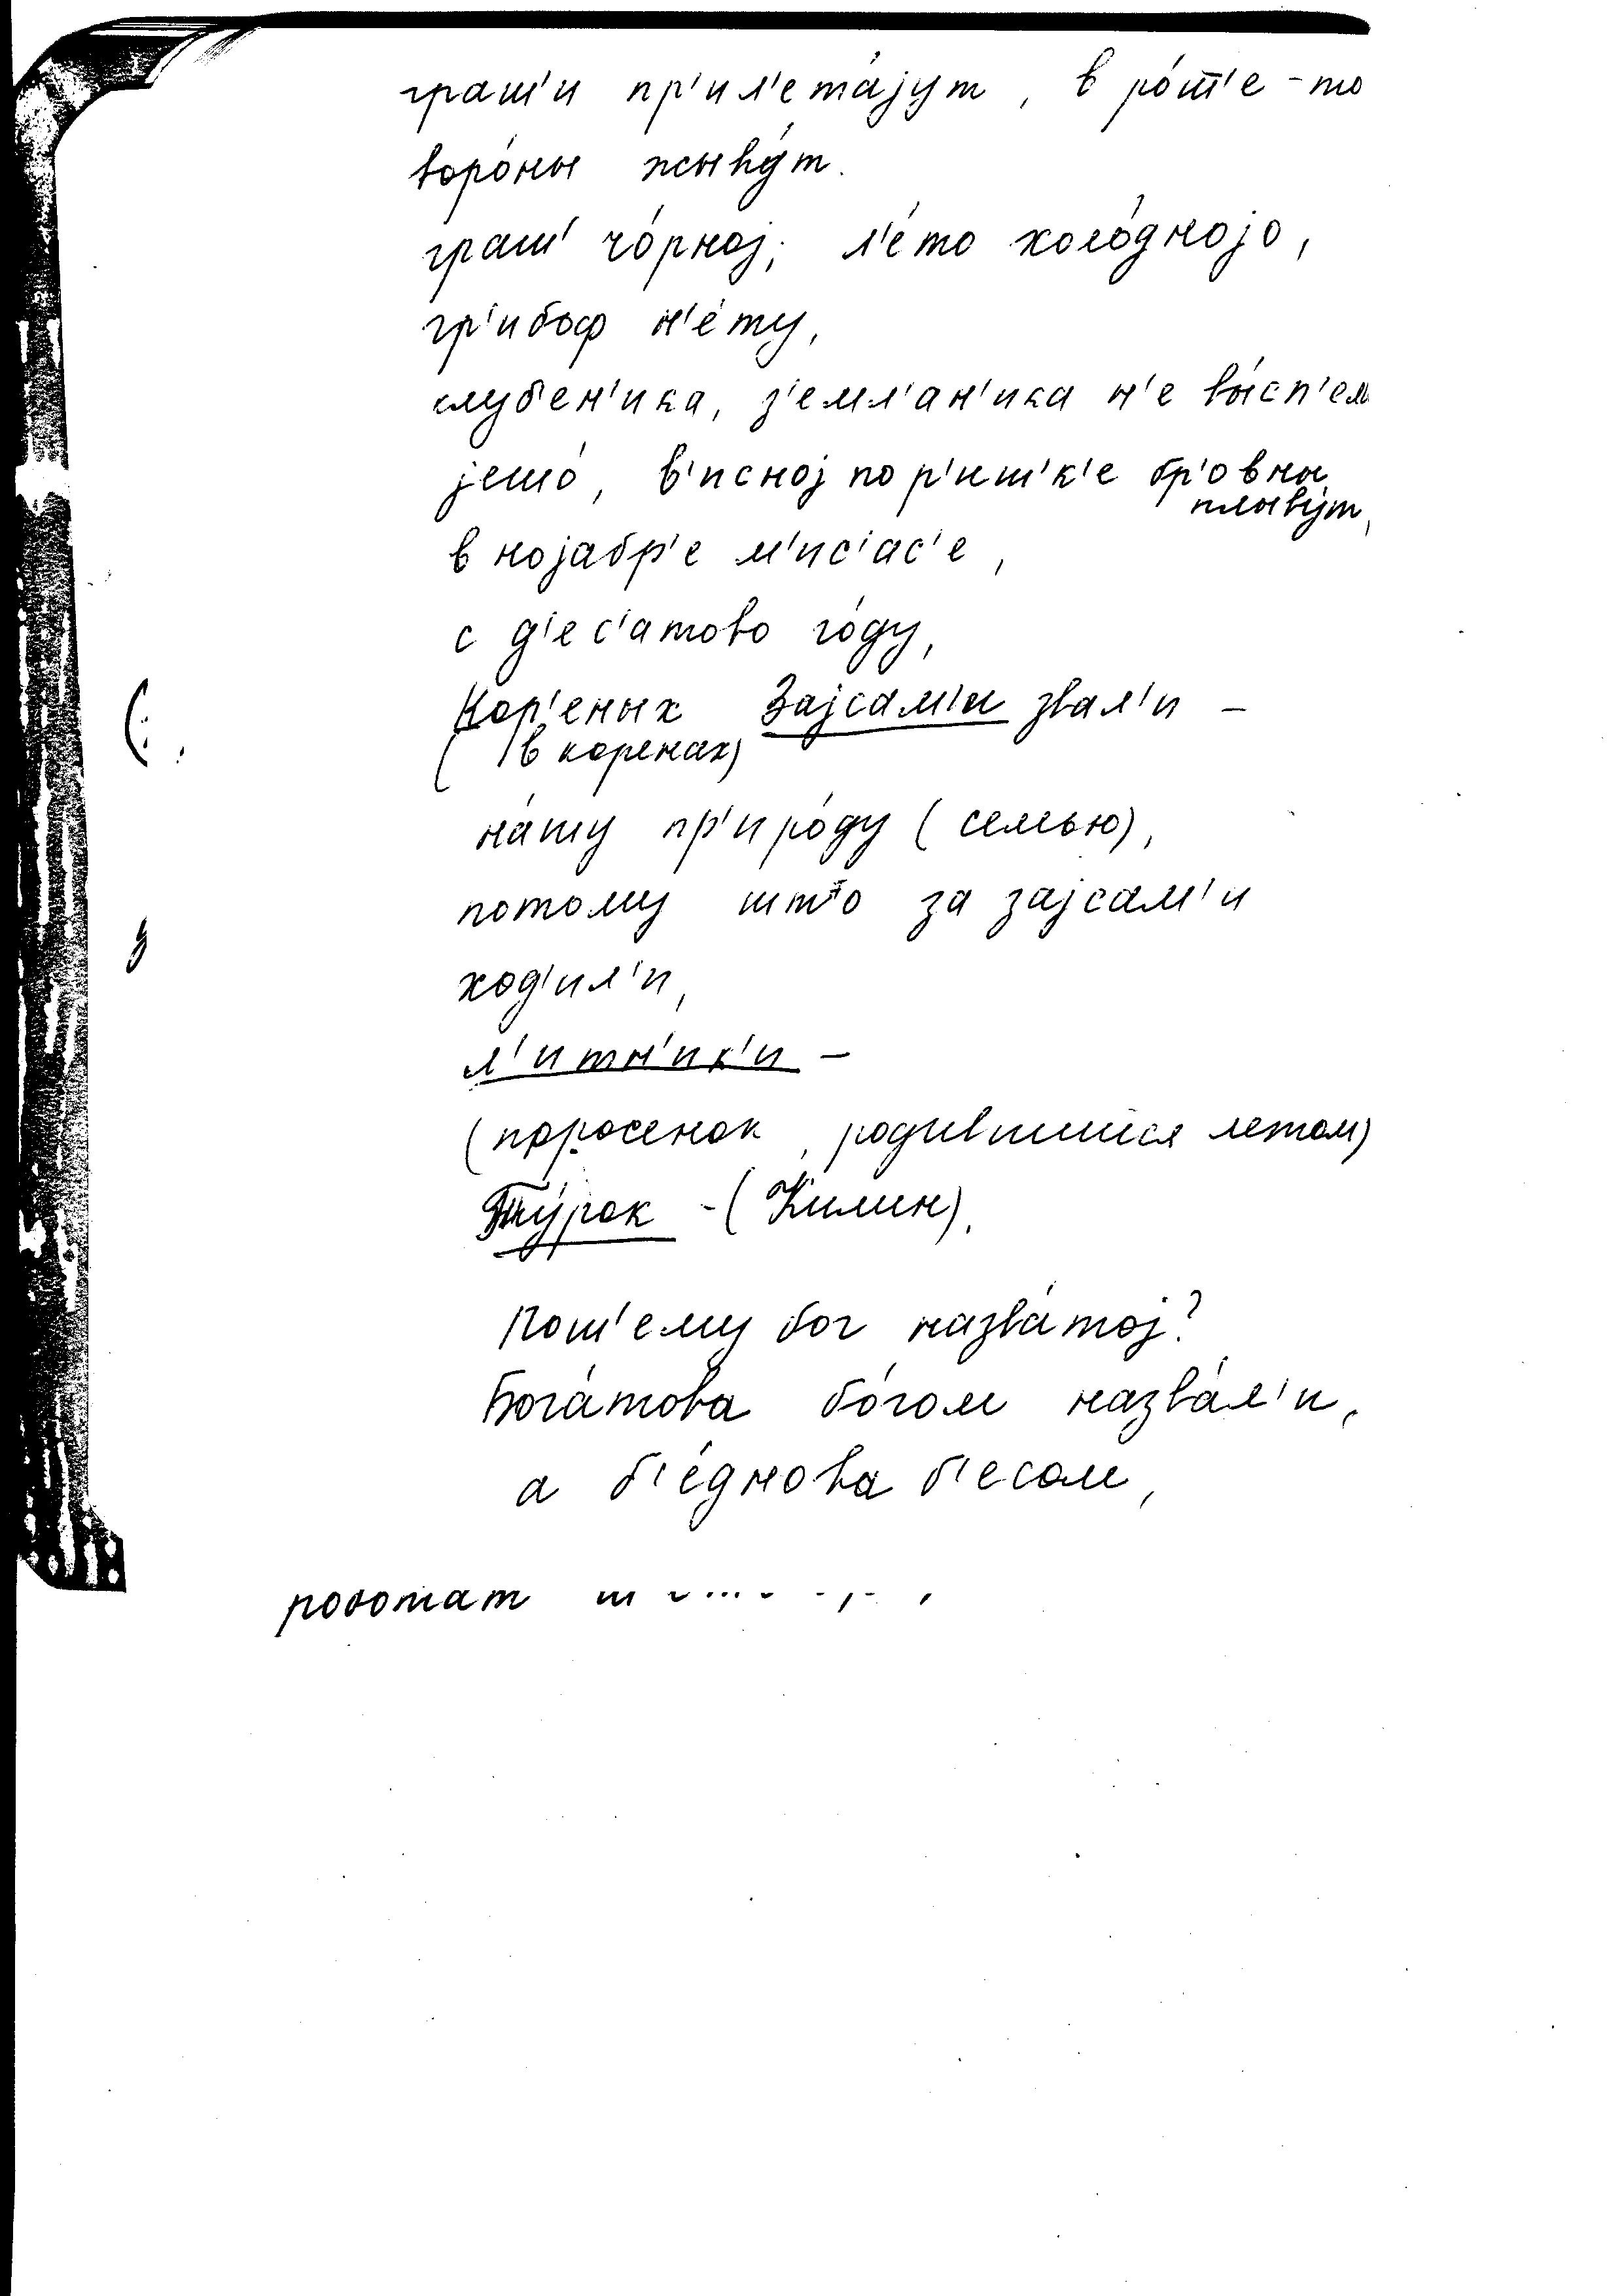 граш'и пр'ил'ета́јут, в ро́ш'е-то
воро́ны жыву́т.
граш' чо́рној; л'е́то холо́дноjо,
гр'ибоф н'е́ту,
клуб'ен'ика, з'емл'ан'ика н'е вы́сп'ел
јешо́, в'исној по р'иш'к'е бр'овны
плыву́т,
в нојабр'е м'ис'ас'е,
с д'ес'атово го́ду,
Кор'еных Зајсам'и звал'и –
(в коренах)
на́шу пр'иро́ду (семью),
потому што за зајсам'и
ход'ил'и,
л'итн'ик'и –
(поросенок, родившийся летом)
Ту́рок - (Килин).
Пош'ему бог назва́тој?
Бога́това бо́гом назва́л'и,
а б'е́днова б'есом,
роботат